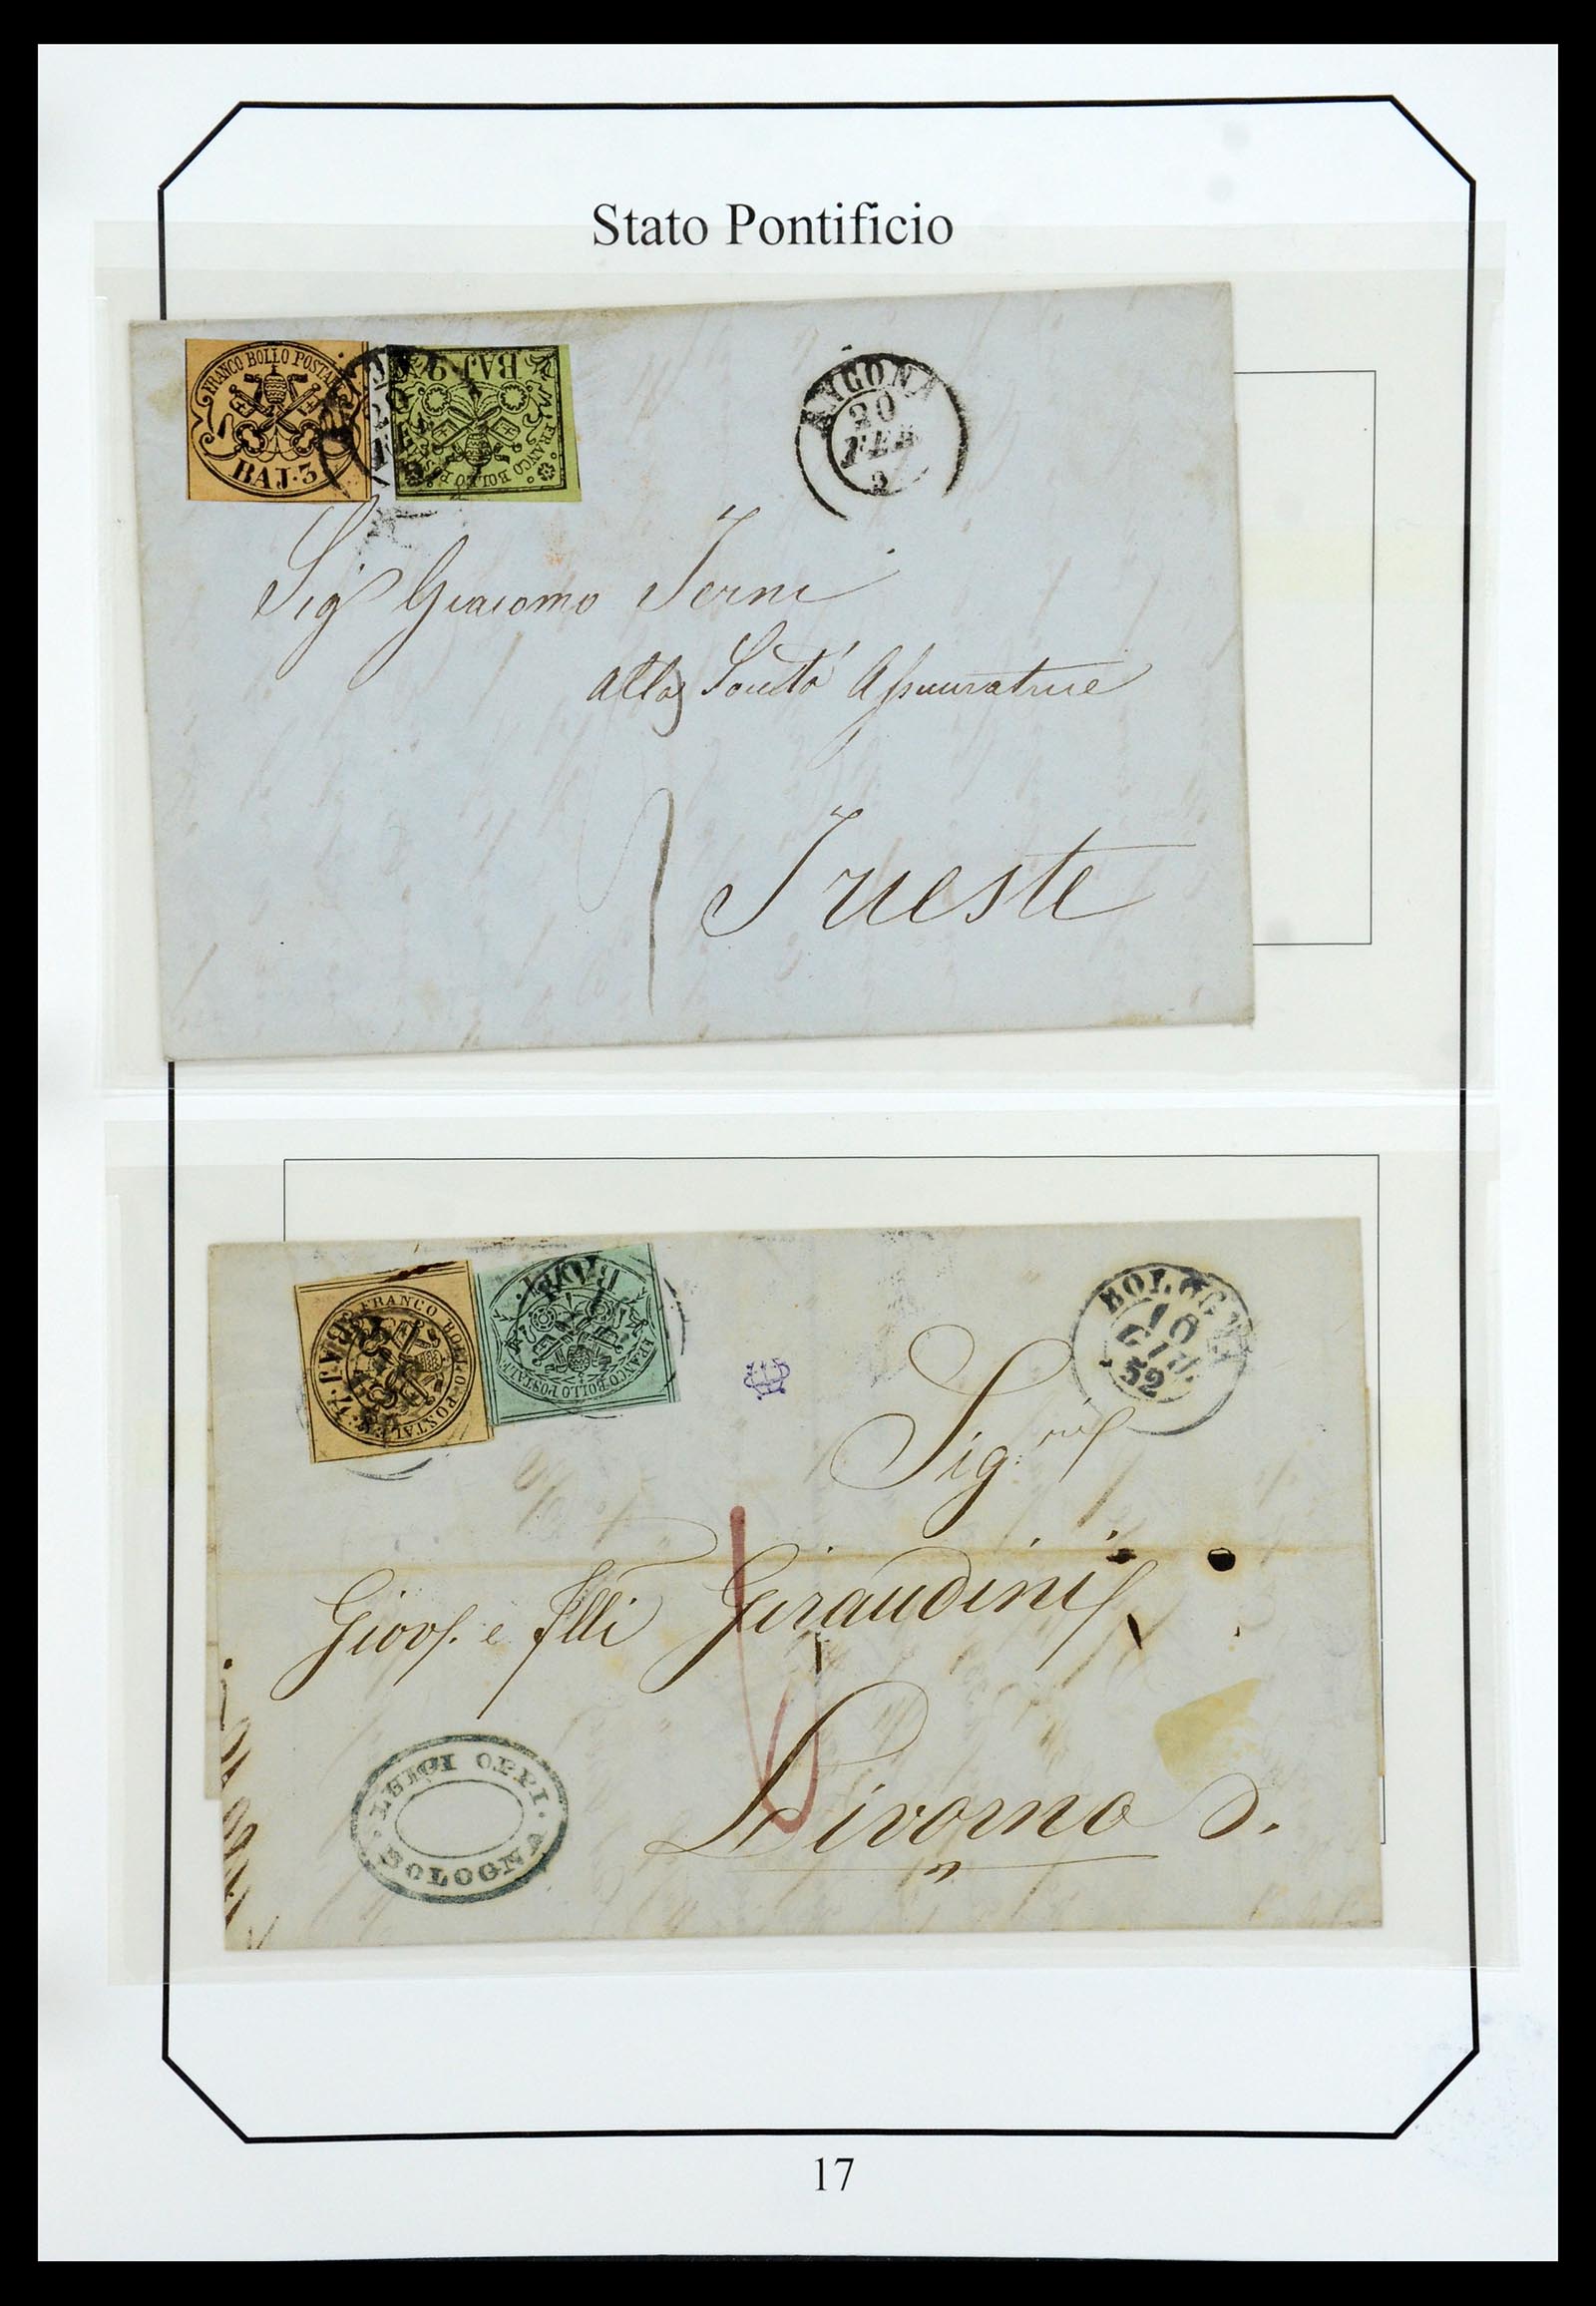 Stato Pontificio
FRANCO BOLLO POSTALE
BAJ·3
BAJ·9
FRANCO BOLLO POSTALE
ANCONA
20
FEB
Sig Giacomo Terni
alla Società Assicuratrice
Trieste
FRANCO BOLLO POSTALE
BAJ
FRANCO BOLLO POSTALE
BOLOGNA
GIU
52
Sig.
Giov. e Flli Giraudini
LUIGI OPPI.
BOLOGNA
Livorno
17